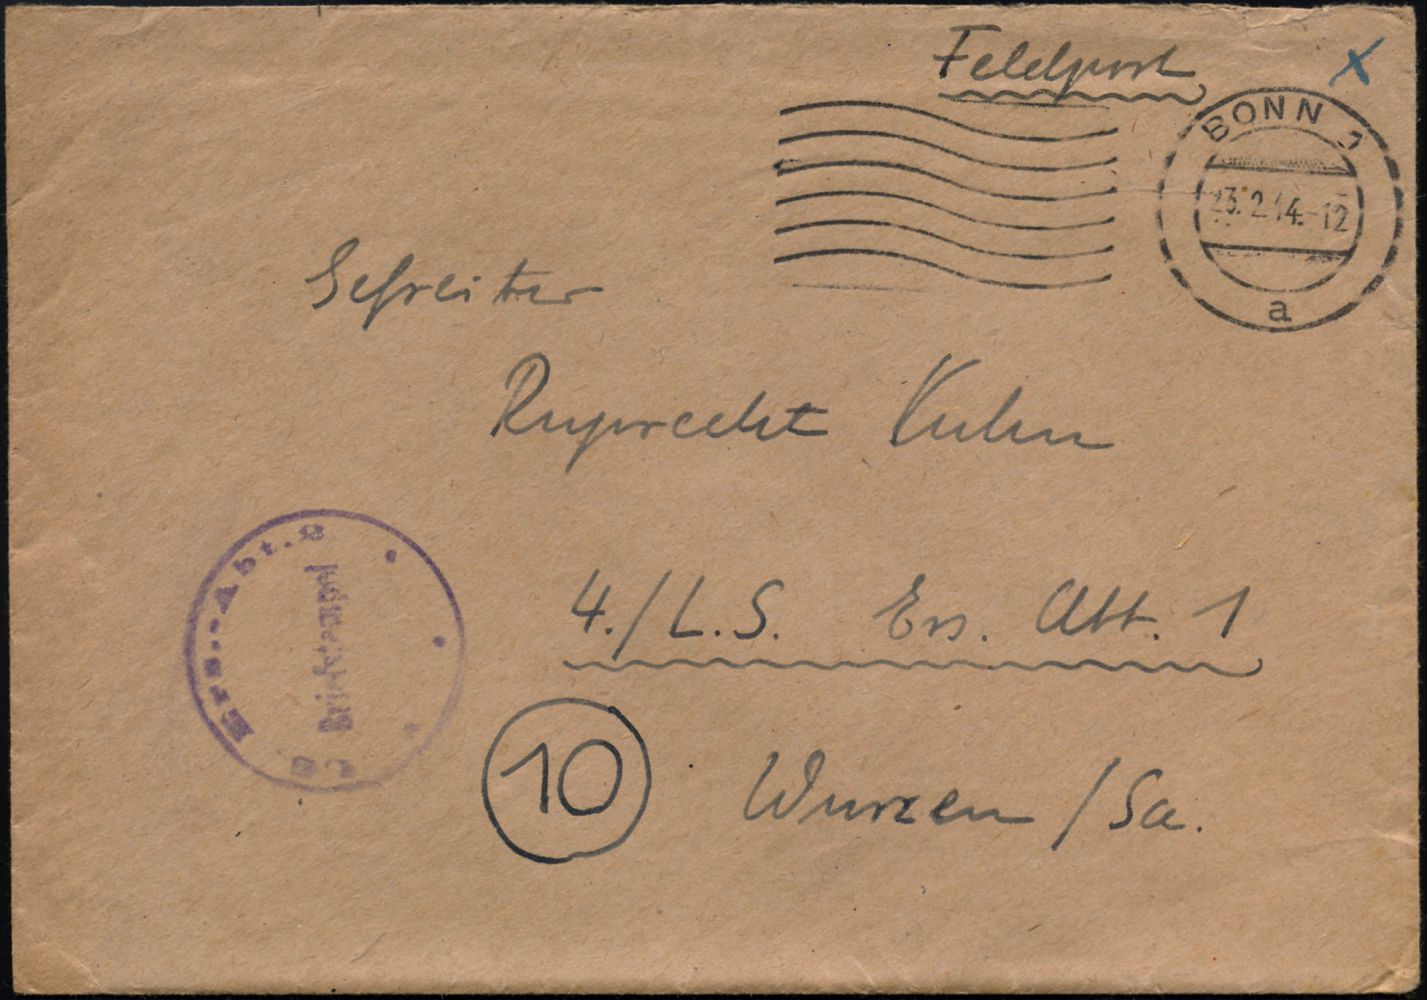 Feldpost
BONN 1
23.2.44.-12
a
Gefreiter
Ruprecht Kuhn
4./L.S. Ers. Abt. 1
10
Wurzen/Sa.
Ers.-Abt. 2
Briefstempel